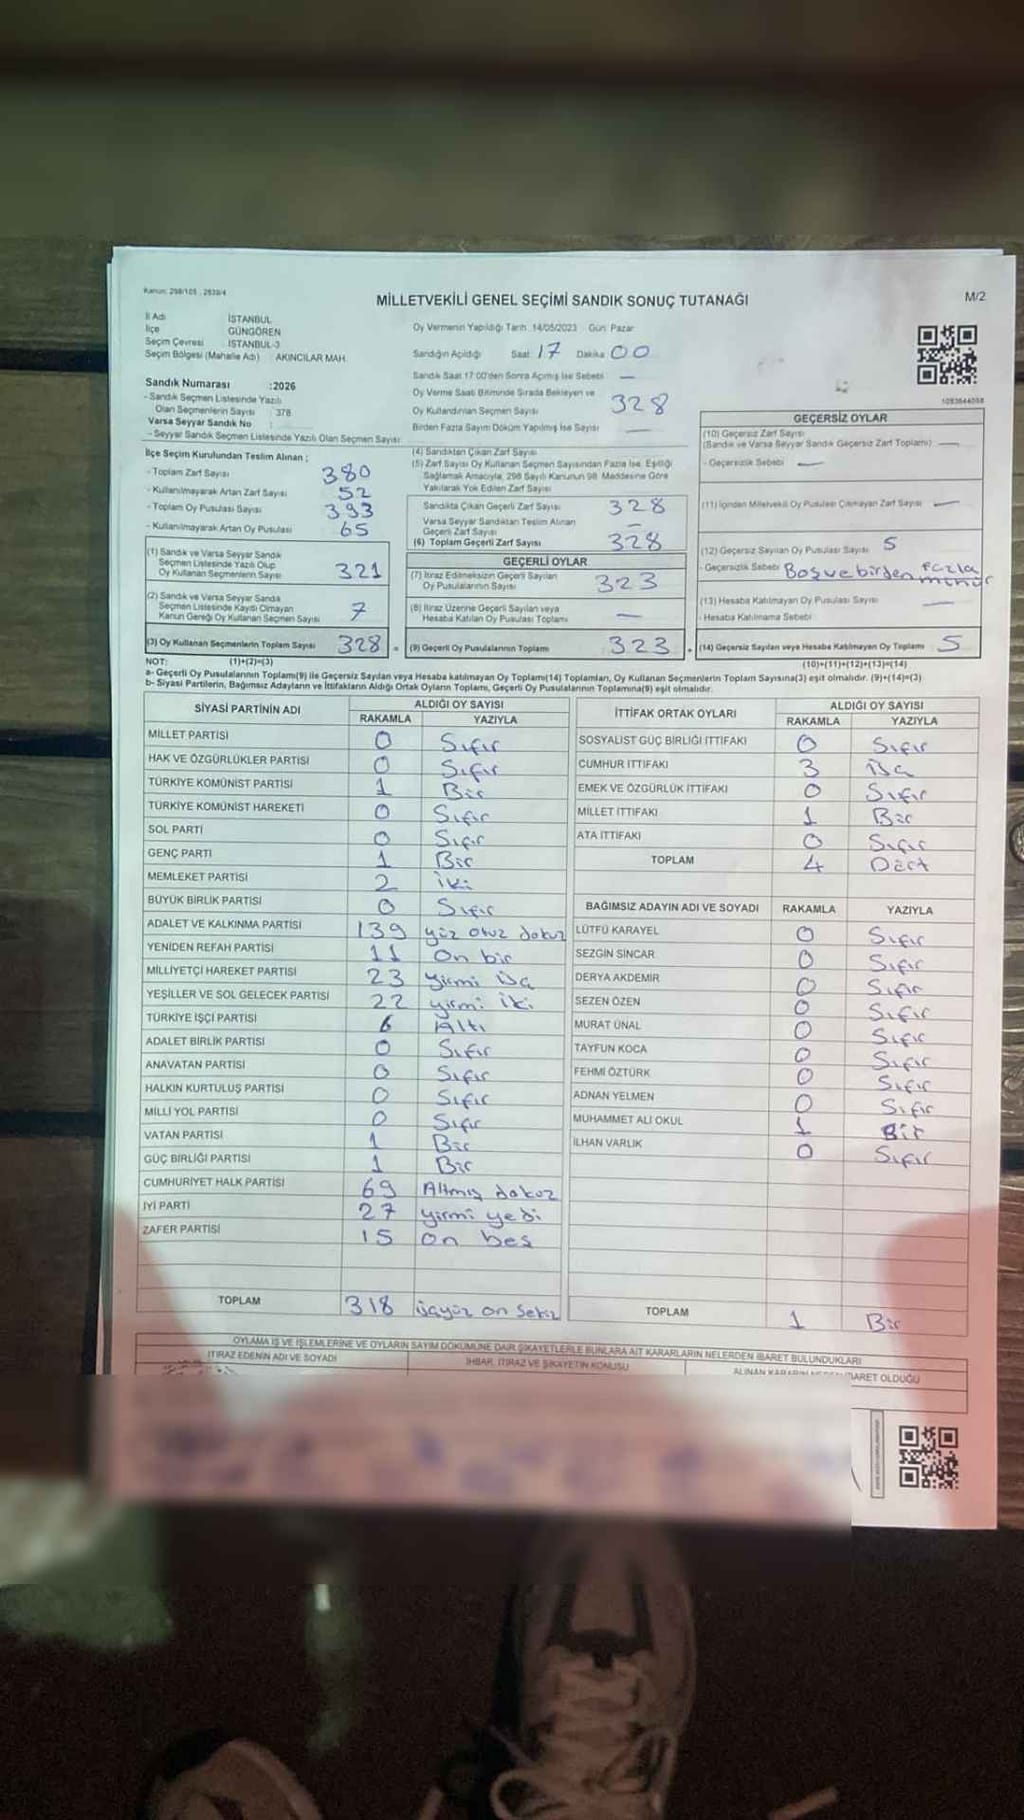 Kanun: 298/105 , 2839/4
MİLLETVEKİLİ GENEL SEÇİMİ SANDIK SONUÇ TUTANAĞI
M/2
İl Adı İSTANBUL
İlçe GÜNGÖREN
Seçim Çevresi İSTANBUL-3
Seçim Bölgesi (Mahalle Adı) AKINCILAR MAH.
Sandık Numarası :2026
- Sandık Seçmen Listesinde Yazılı
Olan Seçmenlerin Sayısı : 378
Varsa Seyyar Sandık No :
- Seyyar Sandık Seçmen Listesinde Yazılı Olan Seçmen Sayısı:
İlçe Seçim Kurulundan Teslim Alınan ;
- Toplam Zarf Sayısı 380
- Kullanılmayarak Artan Zarf Sayısı 52
- Toplam Oy Pusulası Sayısı 393
- Kullanılmayarak Artan Oy Pusulası 65
(1) Sandık ve Varsa Seyyar Sandık
Seçmen Listesinde Yazılı Olup
Oy Kullanan Seçmenlerin Sayısı 321
(2) Sandık ve Varsa Seyyar Sandık
Seçmen Listesinde Kaydı Olmayan
Kanun Gereği Oy Kullanan Seçmen Sayısı 7
(3) Oy Kullanan Seçmenlerin Toplam Sayısı 328 =
Oy Vermenin Yapıldığı Tarih :14/05/2023 Gün: Pazar
Sandığın Açıldığı Saat: 17 Dakika: 00
Sandık Saat 17:00'den Sonra Açılmış İse Sebebi —
Oy Verme Saati Bitiminde Sırada Bekleyen ve
Oy Kullandırılan Seçmen Sayısı 328
Birden Fazla Sayım Döküm Yapılmış İse Sayısı —
(4) Sandıktan Çıkan Zarf Sayısı
(5) Zarf Sayısı Oy Kullanan Seçmen Sayısından Fazla İse, Eşitliği
Sağlamak Amacıyla, 298 Sayılı Kanunun 98. Maddesine Göre
Yakılarak Yok Edilen Zarf Sayısı
Sandıkta Çıkan Geçerli Zarf Sayısı 328
Varsa Seyyar Sandıktan Teslim Alınan
Geçerli Zarf Sayısı —
(6) Toplam Geçerli Zarf Sayısı 328
GEÇERLİ OYLAR
(7) İtiraz Edilmeksizin Geçerli Sayılan
Oy Pusulalarının Sayısı 323
(8) İtiraz Üzerine Geçerli Sayılan veya
Hesaba Katılan Oy Pusulası Toplamı —
(9) Geçerli Oy Pusulalarının Toplamı 323 +
1093644058
GEÇERSİZ OYLAR
(10) Geçersiz Zarf Sayısı
(Sandık ve Varsa Seyyar Sandık Geçersiz Zarf Toplamı) —
- Geçersizlik Sebebi —
(11) İçinden Milletvekili Oy Pusulası Çıkmayan Zarf Sayısı —
(12) Geçersiz Sayılan Oy Pusulası Sayısı 5
- Geçersizlik Sebebi Boş ve birden fazla
mühür
(13) Hesaba Katılmayan Oy Pusulası Sayısı —
- Hesaba Katılmama Sebebi
(14) Geçersiz Sayılan veya Hesaba Katılmayan Oy Toplamı 5
NOT: (1)+(2)=(3) (10)+(11)+(12)+(13)=(14)
a- Geçerli Oy Pusulalarının Toplamı(9) ile Geçersiz Sayılan veya Hesaba katılmayan Oy Toplamı(14) Toplamları, Oy Kullanan Seçmenlerin Toplam Sayısına(3) eşit olmalıdır. (9)+(14)=(3)
b- Siyasi Partilerin, Bağımsız Adayların ve İttifakların Aldığı Ortak Oyların Toplamı, Geçerli Oy Pusulalarının Toplamına(9) eşit olmalıdır.
SİYASİ PARTİNİN ADI ALDIĞI OY SAYISI
RAKAMLA YAZIYLA
MİLLET PARTİSİ 0 Sıfır
HAK VE ÖZGÜRLÜKLER PARTİSİ 0 Sıfır
TÜRKİYE KOMÜNİST PARTİSİ 1 Bir
TÜRKİYE KOMÜNİST HAREKETİ 0 Sıfır
SOL PARTİ 0 Sıfır
GENÇ PARTİ 1 Bir
MEMLEKET PARTİSİ 2 iki
BÜYÜK BİRLİK PARTİSİ 0 Sıfır
ADALET VE KALKINMA PARTİSİ 139 yüz otuz dokuz
YENİDEN REFAH PARTİSİ 11 On bir
MİLLİYETÇİ HAREKET PARTİSİ 23 yirmi üç
YEŞİLLER VE SOL GELECEK PARTİSİ 22 yirmi iki
TÜRKİYE İŞÇİ PARTİSİ 6 Altı
ADALET BİRLİK PARTİSİ 0 Sıfır
ANAVATAN PARTİSİ 0 Sıfır
HALKIN KURTULUŞ PARTİSİ 0 Sıfır
MİLLİ YOL PARTİSİ 0 Sıfır
VATAN PARTİSİ 1 Bir
GÜÇ BİRLİĞİ PARTİSİ 1 Bir
CUMHURİYET HALK PARTİSİ 69 Altmış dokuz
İYİ PARTİ 27 yirmi yedi
ZAFER PARTİSİ 15 on beş
TOPLAM 318 üçyüz on sekiz
İTTİFAK ORTAK OYLARI ALDIĞI OY SAYISI
RAKAMLA YAZIYLA
SOSYALİST GÜÇ BİRLİĞİ İTTİFAKI 0 Sıfır
CUMHUR İTTİFAKI 3 üç
EMEK VE ÖZGÜRLÜK İTTİFAKI 0 Sıfır
MİLLET İTTİFAKI 1 Bir
ATA İTTİFAKI 0 Sıfır
TOPLAM 4 Dört
BAĞIMSIZ ADAYIN ADI VE SOYADI RAKAMLA YAZIYLA
LÜTFÜ KARAYEL 0 Sıfır
SEZGİN SİNCAR 0 Sıfır
DERYA AKDEMİR 0 Sıfır
SEZEN ÖZEN 0 Sıfır
MURAT ÜNAL 0 Sıfır
TAYFUN KOCA 0 Sıfır
FEHMİ ÖZTÜRK 0 Sıfır
ADNAN YELMEN 0 Sıfır
MUHAMMET ALİ OKUL 1 Bir
İLHAN VARLIK 0 Sıfır
TOPLAM 1 Bir
OYLAMA İŞ VE İŞLEMLERİNE VE OYLARIN SAYIM DÖKÜMÜNE DAİR ŞİKAYETLERLE BUNLARA AİT KARARLARIN NELERDEN İBARET BULUNDUKLARI
İTİRAZ EDENİN ADI VE SOYADI İHBAR, İTİRAZ VE ŞİKAYETİN KONUSU ALINAN KARARIN İBARET OLDUĞU